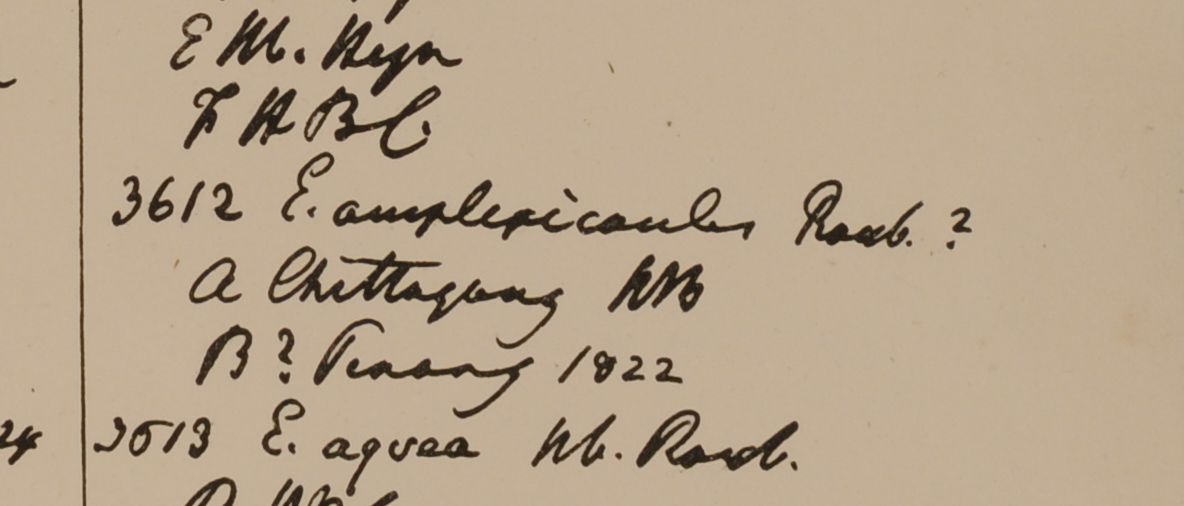 E Hb. Heyn
F H B C.
3612 E. amplexicaulis Roxb. ?
a Chittagong HB
B? Penang 1822
24 3613 E. aquea Hb. Roxb.